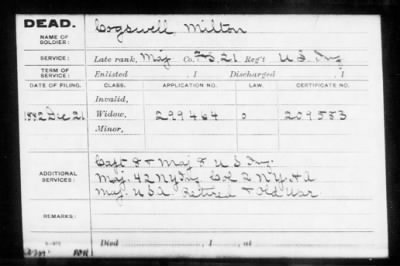 DEAD.
NAME OF SOLDIER:
Cogswell Milton
SERVICE:
Late rank, Maj Co. F&S. 21 Reg't U S Inf
TERM OF SERVICE:
Enlisted , 1 Discharged , 1
DATE OF FILING. CLASS. APPLICATION NO. LAW. CERTIFICATE NO.
Invalid,
1882 Dec 21 Widow, 299464 o 209553
Minor,
ADDITIONAL SERVICES:
Capt 8 & Maj 8 U S Inf.
Maj. 42 N Y Inf Col 2 N.Y. H A
Maj. U S A Retired & Old War
REMARKS:
Died , 1 , at